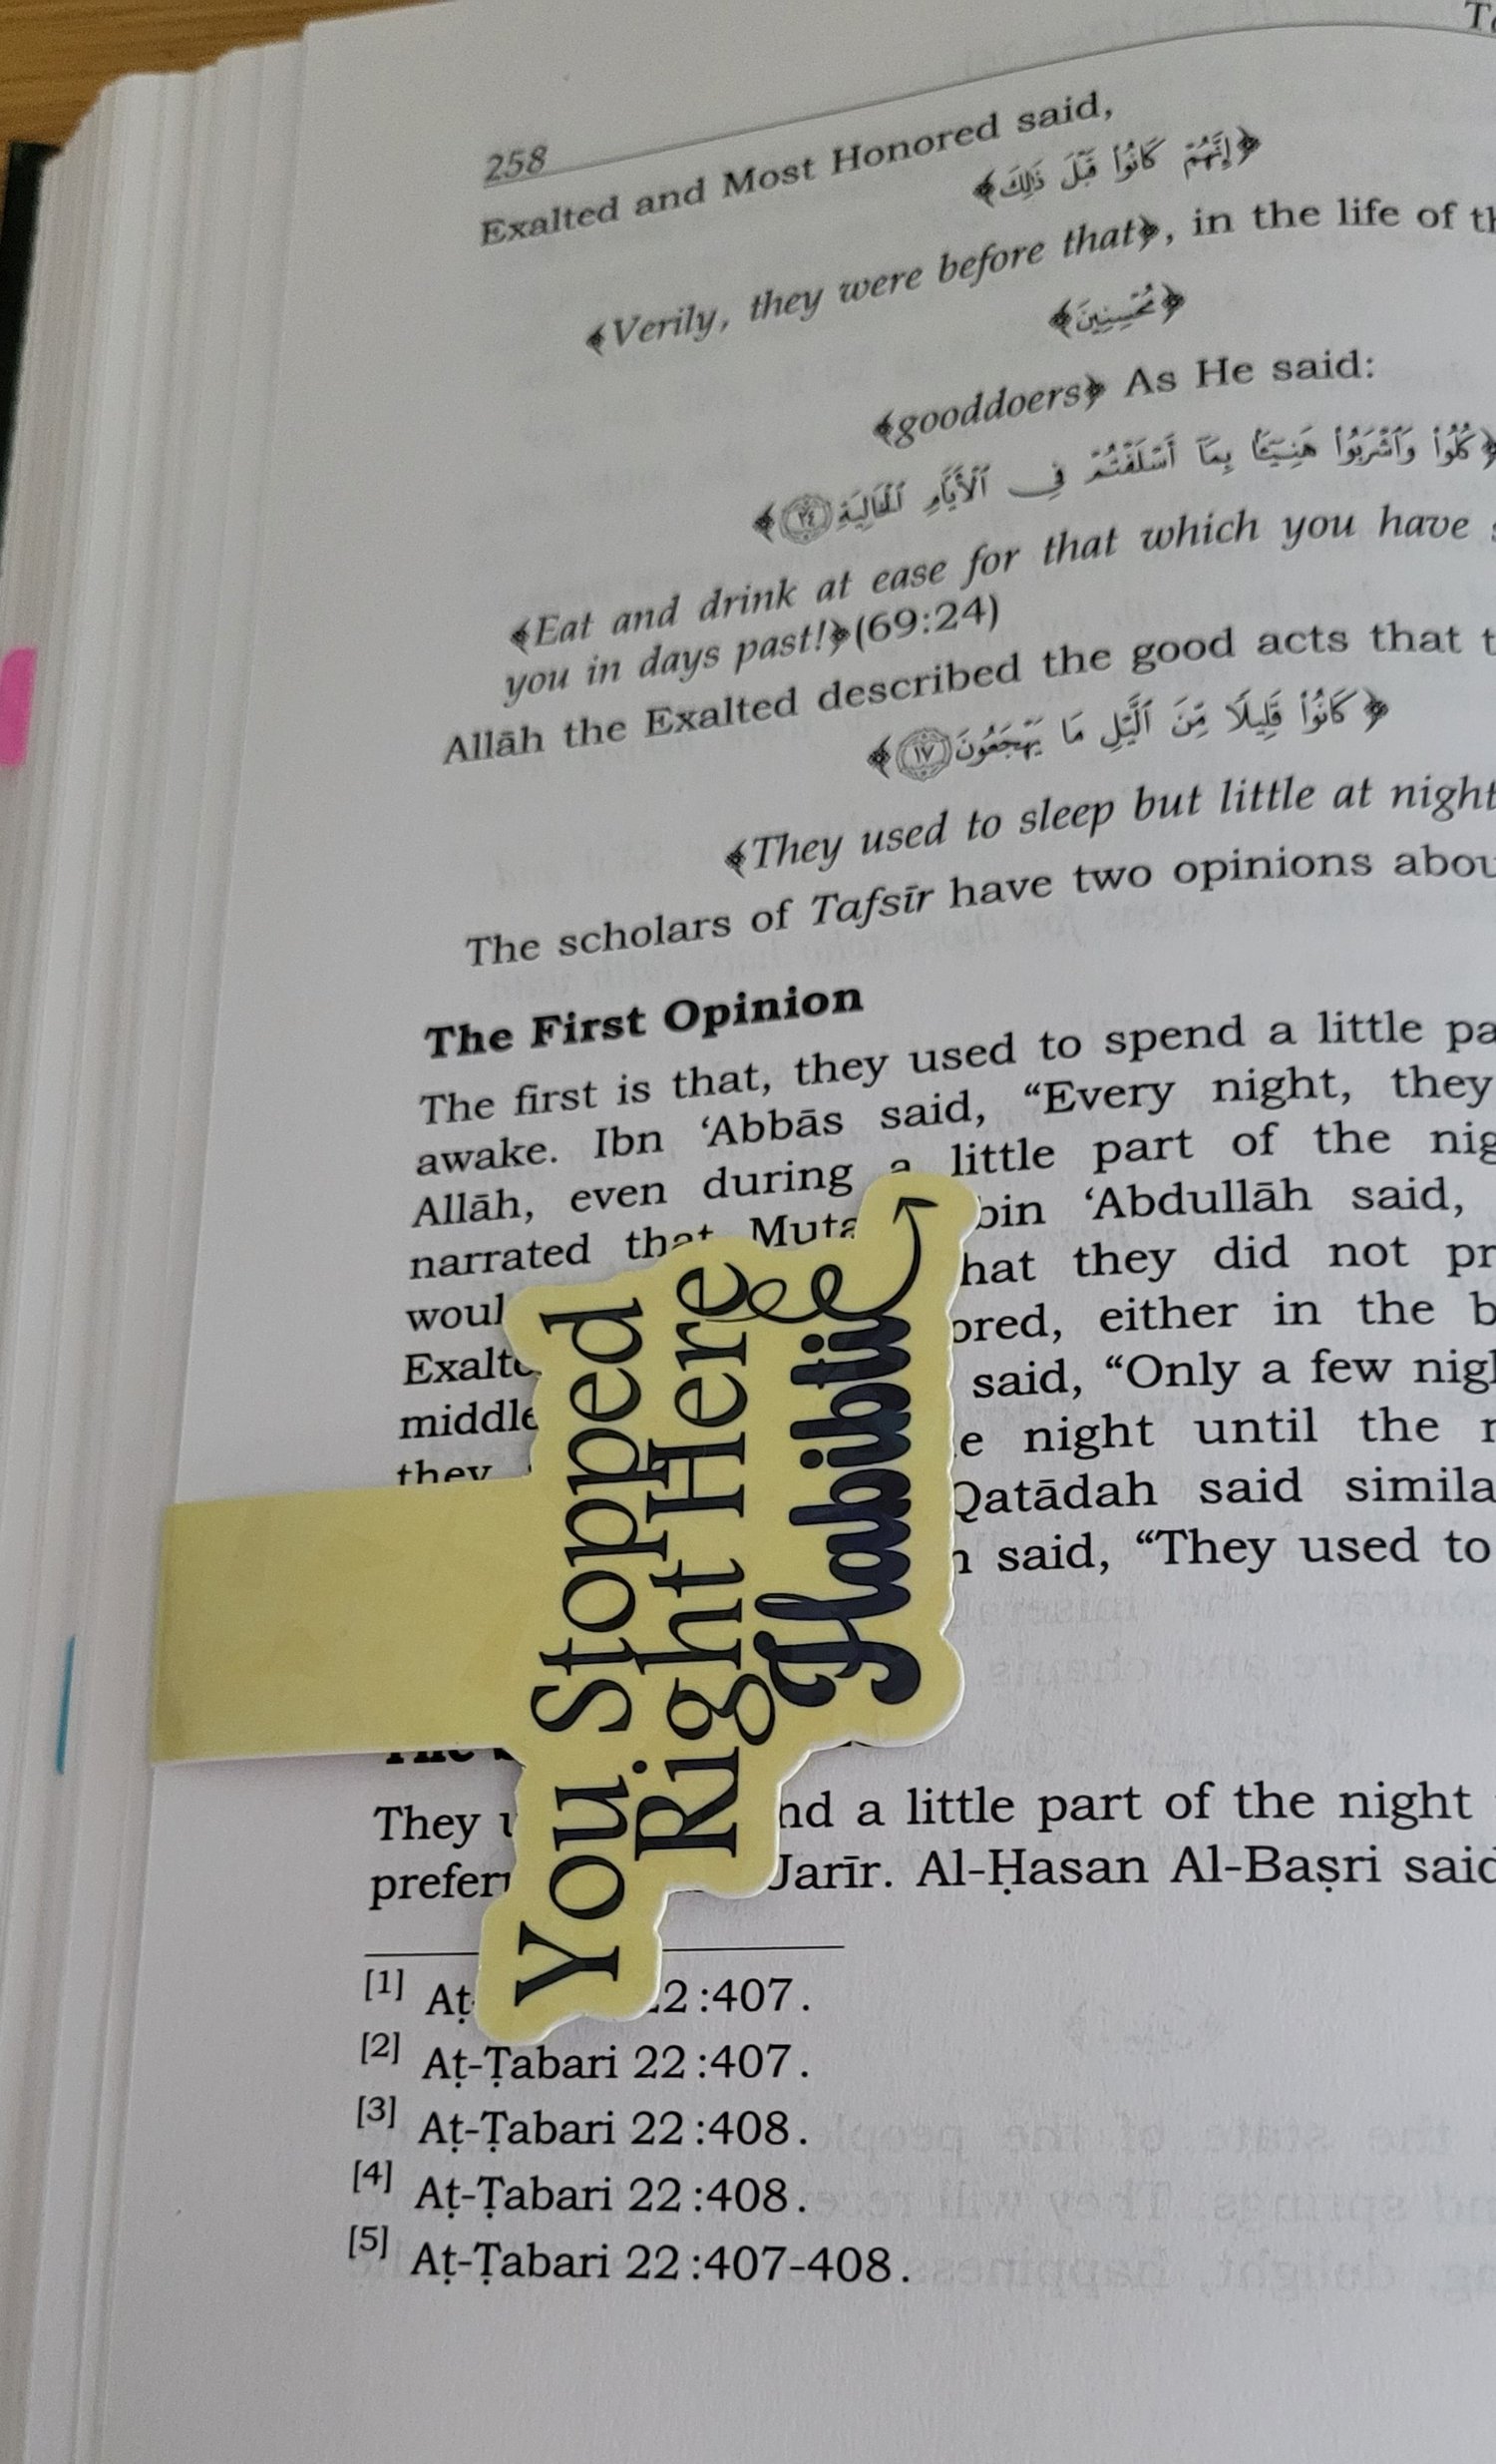 258
Exalted and Most Honored said,
﴿إِنَّهُمْ كَانُوا۟ قَبْلَ ذَٰلِكَ﴾
﴿Verily, they were before that﴾, in the life of
﴿مُحْسِنِينَ﴾
﴿gooddoers﴾ As He said:
﴿كُلُوا۟ وَٱشْرَبُوا۟ هَنِيٓـًٔۢا بِمَآ أَسْلَفْتُمْ فِى ٱلْأَيَّامِ ٱلْخَالِيَةِ ٢٤﴾
﴿Eat and drink at ease for that which you have
you in days past!﴾(69:24)
Allāh the Exalted described the good acts that
﴿كَانُوا۟ قَلِيلًا مِّنَ ٱلَّيْلِ مَا يَهْجَعُونَ ١٧﴾
﴿They used to sleep but little at night
The scholars of Tafsīr have two opinions
The First Opinion
The first is that, they used to spend a little
awake. Ibn ‘Abbās said, “Every night, they
Allāh, even during a little part of the
narrated that bin ‘Abdullāh said,
that they did not
either in the
middle said, “Only a few
they night until the
Qatādah said
said, “They used to
You Stopped
Right Here
Habibtie
They a little part of the night
Jarīr. Al-Ḥasan Al-Baṣri said
[1] 22:407.
[2] Aṭ-Ṭabari 22:407.
[3] Aṭ-Ṭabari 22:408.
[4] Aṭ-Ṭabari 22:408.
[5] Aṭ-Ṭabari 22:407-408.